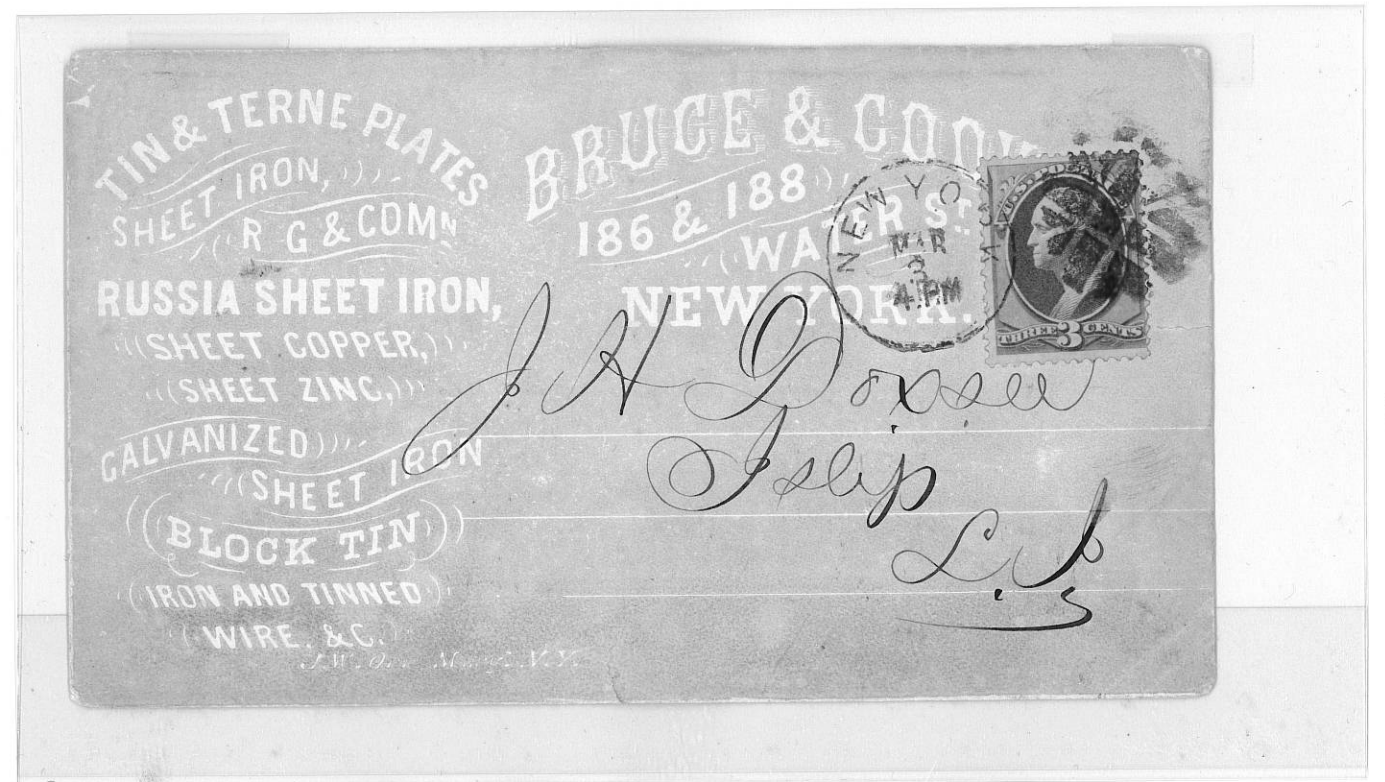 TIN & TERNE PLATES
SHEET IRON,
R G & COMN
RUSSIA SHEET IRON,
SHEET COPPER,
SHEET ZINC,
GALVANIZED
SHEET IRON
BLOCK TIN
IRON AND TINNED
WIRE. &C.
N.Y.
BRUCE & COOK
186 & 188
WATER ST.
NEW YORK.
NEW YORK
MAR
3
4 PM
U.S. POSTAGE
THREE 3 CENTS
J H Doxsee
Islip
L. I